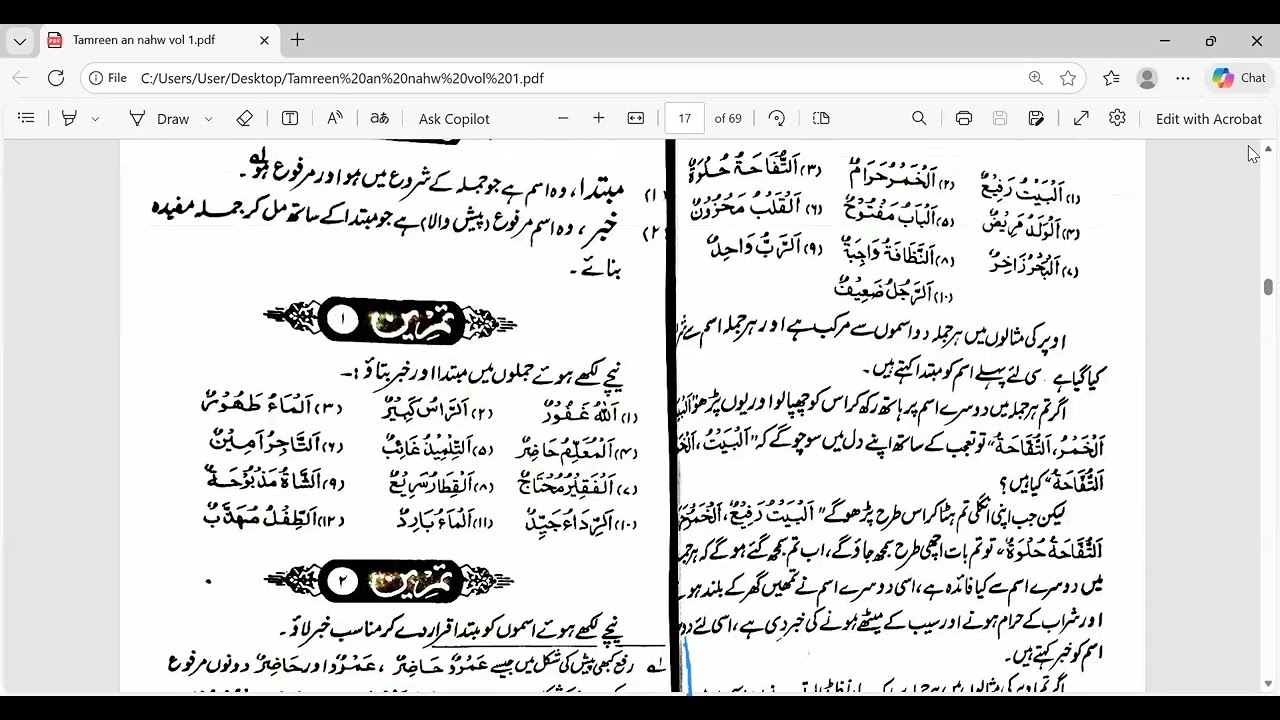 Tamreen an nahw vol 1.pdf
File
C:/Users/User/Desktop/Tamreen%20an%20nahw%20vol%201.pdf
Chat
Draw
Ask Copilot
17 of 69
Edit with Acrobat
(۱) اَلْبَيْتُ رَفِيْعٌ (۲) اَلْخَمْرُ حَرَامٌ (۳) اَلتُّفَّاحَةُ حُلْوَةٌ
(۴) اَلْوَلَدُ مَرِيْضٌ (۵) اَلْبَابُ مَفْتُوْحٌ (۶) اَلْقَلْبُ مَحْزُوْنٌ
(۷) اَلْبَحْرُ زَاخِرٌ (۸) اَلنَّظَافَةُ وَاجِبَةٌ (۹) اَلرَّبُّ وَاحِدٌ
(۱۰) اَلرَّجُلُ ضَعِيْفٌ
اوپر کی مثالوں میں ہر جملہ دو اسموں سے مرکب ہے اور ہر جملہ اسم سے
کیا گیا ہے سی لئے پہلے اسم کو مبتدا کہتے ہیں۔
اگر تم ہر جملہ میں دوسرے اسم پر ہاتھ رکھ کر اس کو چھپا لو اور یوں پڑھو
اَلْخَمْرُ، اَلتُّفَّاحَةُ" تو تعجب کے ساتھ اپنے دل میں سوچو گے کہ "اَلْبَيْتُ،
اَلتُّفَّاحَةُ" کیا ہیں؟
لیکن جب اپنی انگلی تم ہٹا کر اس طرح پڑھو گے "اَلْبَيْتُ رَفِيْعٌ،
اَلتُّفَّاحَةُ حُلْوَةٌ" تو تم بات اچھی طرح سمجھ جاؤ گے، اب تم سمجھ گئے ہو گے کہ ہر
میں دوسرے اسم سے کیا فائدہ ہے، اسی دوسرے اسم نے تمھیں گھر کے بلند
اور شراب کے حرام ہونے اور سیب کے میٹھے ہونے کی خبر دی ہے، اسی لئے
اسم کو خبر کہتے ہیں۔
(۱) مبتدا، وہ اسم ہے جو جملہ کے شروع میں ہو اور مرفوع ہو۔
(۲) خبر، وہ اسم مرفوع (پیش والا) ہے جو مبتدا کے ساتھ مل کر جملہ مفیدہ
بنائے۔
تمرین ۱
نیچے لکھے ہوئے جملوں میں مبتدا اور خبر بتاؤ:۔
(۱) اَللّٰهُ غَفُوْرٌ (۲) اَلرَّاسُ كَبِيْرٌ (۳) اَلْمَاءُ طَهُوْرٌ
(۴) اَلْمُعَلِّمُ حَاضِرٌ (۵) اَلتِّلْمِيْذُ غَائِبٌ (۶) اَلتَّاجِرُ اَمِيْنٌ
(۷) اَلْفَقِيْرُ مُحْتَاجٌ (۸) اَلْقِطَارُ سَرِيْعٌ (۹) اَلشَّاةُ مَذْبُوْحَةٌ
(۱۰) اَلرِّدَاءُ جَيِّدٌ (۱۱) اَلْمَاءُ بَارِدٌ (۱۲) اَلطِّفْلُ مُهَذَّبٌ
تمرین ۲
نیچے لکھے ہوئے اسموں کو مبتدا قرار دے کر مناسب خبر لاؤ۔
لہ رفع کبھی پیش کی شکل میں جیسے عَمْرٌو حَاضِرٌ، عَمْرٌو اور حَاضِرٌ دونوں مرفوع